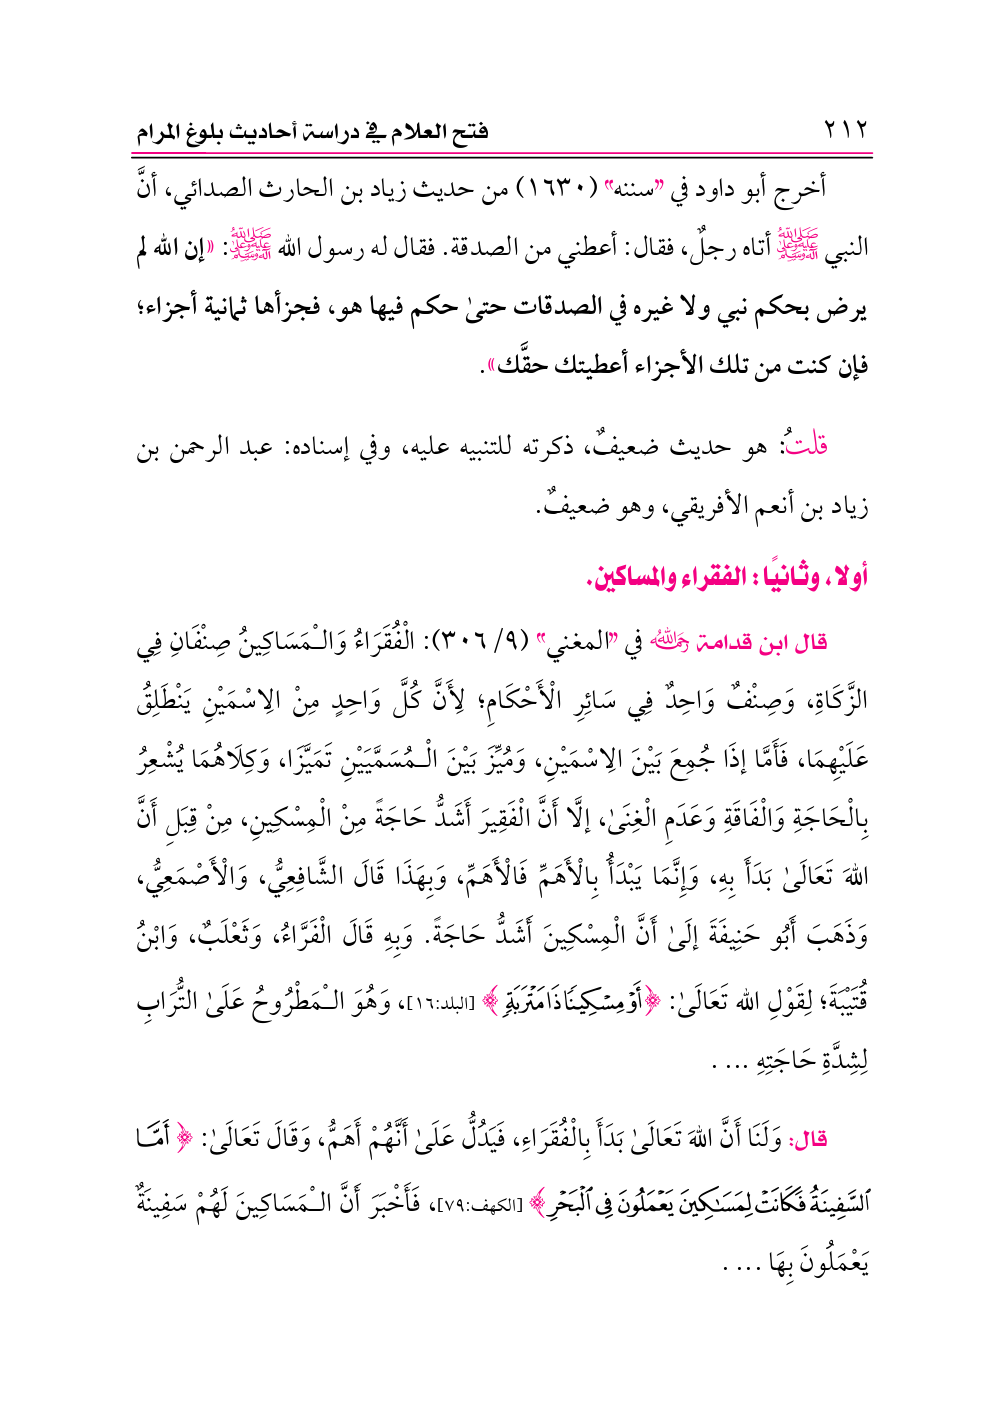 ٢١٢ فتح العلام في دراسة أحاديث بلوغ المرام
أخرج أبو داود في "سننه" (١٦٣٠) من حديث زياد بن الحارث الصدائي، أنَّ
النبي ﷺ أتاه رجلٌ، فقال: أعطني من الصدقة. فقال له رسول الله ﷺ: «إن الله لم
يرض بحكم نبي ولا غيره في الصدقات حتىٰ حكم فيها هو، فجزأها ثمانية أجزاء؛
فإن كنت من تلك الأجزاء أعطيتك حقَّك».
قلتُ: هو حديث ضعيفٌ، ذكرته للتنبيه عليه، وفي إسناده: عبد الرحمن بن
زياد بن أنعم الأفريقي، وهو ضعيفٌ.
أولا، وثانيًا: الفقراء والمساكين.
قال ابن قدامة رحمه الله في "المغني" (٩/ ٣٠٦): الْفُقَرَاءُ وَالْـمَسَاكِينُ صِنْفَانِ فِي
الزَّكَاةِ، وَصِنْفٌ وَاحِدٌ فِي سَائِرِ الْأَحْكَامِ؛ لِأَنَّ كُلَّ وَاحِدٍ مِنْ الِاسْمَيْنِ يَنْطَلِقُ
عَلَيْهِمَا، فَأَمَّا إذَا جُمِعَ بَيْنَ الِاسْمَيْنِ، وَمُيِّزَ بَيْنَ الْـمُسَمَّيَيْنِ تَمَيَّزَا، وَكِلَاهُمَا يُشْعِرُ
بِالْحَاجَةِ وَالْفَاقَةِ وَعَدَمِ الْغِنَىٰ، إلَّا أَنَّ الْفَقِيرَ أَشَدُّ حَاجَةً مِنْ الْمِسْكِينِ، مِنْ قِبَلِ أَنَّ
اللهَ تَعَالَىٰ بَدَأَ بِهِ، وَإِنَّمَا يَبْدَأُ بِالْأَهَمِّ فَالْأَهَمِّ، وَبِهَذَا قَالَ الشَّافِعِيُّ، وَالْأَصْمَعِيُّ،
وَذَهَبَ أَبُو حَنِيفَةَ إلَىٰ أَنَّ الْمِسْكِينَ أَشَدُّ حَاجَةً. وَبِهِ قَالَ الْفَرَّاءُ، وَثَعْلَبٌ، وَابْنُ
قُتَيْبَةَ؛ لِقَوْلِ الله تَعَالَىٰ: ﴿أَوْ مِسْكِينًا ذَا مَتْرَبَةٍ﴾ [البلد:١٦]، وَهُوَ الْـمَطْرُوحُ عَلَىٰ التُّرَابِ
لِشِدَّةِ حَاجَتِهِ ... .
قال: وَلَنَا أَنَّ اللهَ تَعَالَىٰ بَدَأَ بِالْفُقَرَاءِ، فَيَدُلُّ عَلَىٰ أَنَّهُمْ أَهَمُّ، وَقَالَ تَعَالَىٰ: ﴿أَمَّا
ٱلسَّفِينَةُ فَكَانَتْ لِمَسَٰكِينَ يَعْمَلُونَ فِى ٱلْبَحْرِ﴾ [الكهف:٧٩]، فَأَخْبَرَ أَنَّ الْـمَسَاكِينَ لَهُمْ سَفِينَةٌ
يَعْمَلُونَ بِهَا ... .